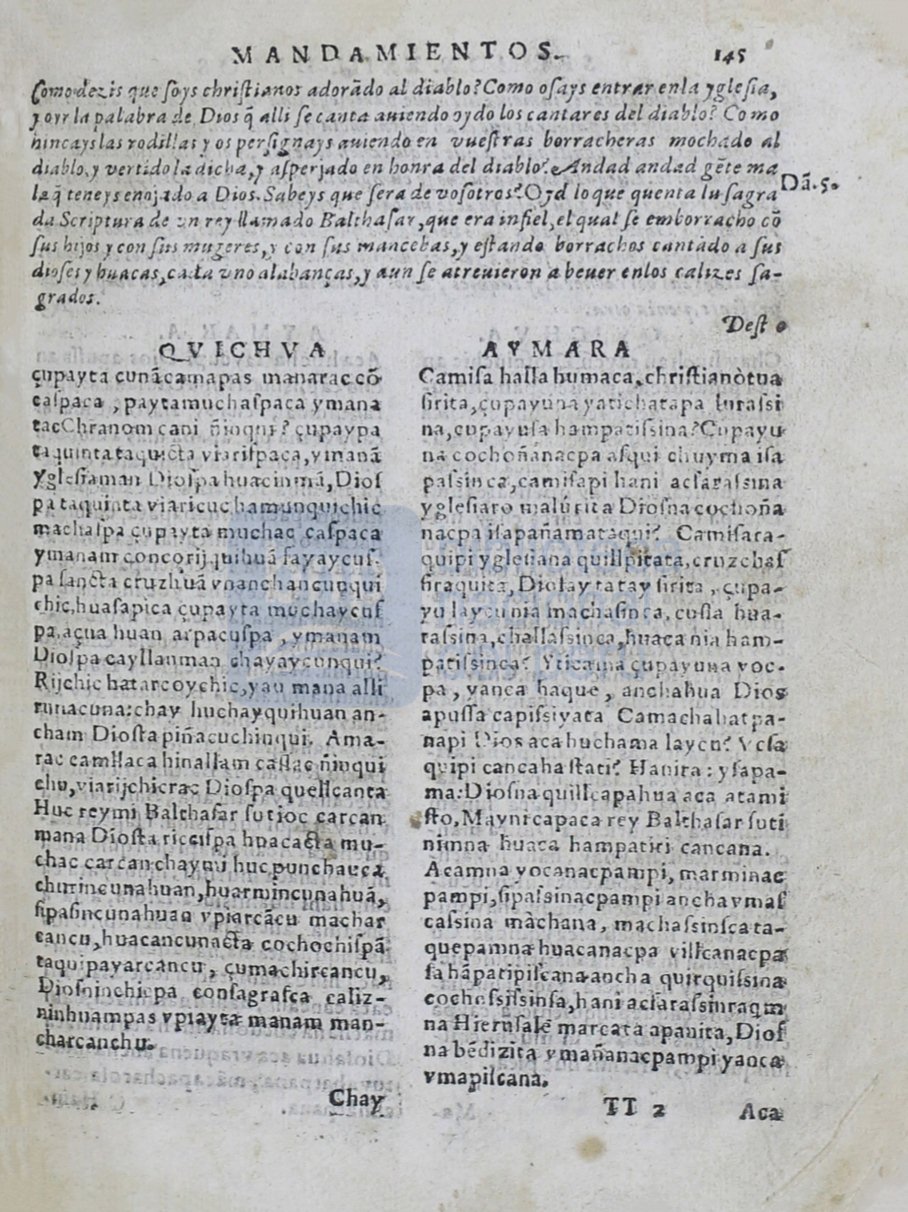 MANDAMIENTOS. 145
Como dezis que soys christianos adorãdo al diablo? Como osays entrar enla yglesia,
y oyr la palabra de Dios q̃ alli se canta auiendo oydo los cantares del diablo? Como
hincays las rodillas y os persignays auiendo en vuestras borracheras mochado al
diablo, y vertido la dicha, y asperjado en honra del diablo? Andad andad gẽte ma
la q̃ teneys enojado a Dios. Sabeys que sera de vosotros? Oyd lo que quenta la sagra
Dã. 5.
da Scriptura de vn rey llamado Balthasar, que era infiel, el qual se emborracho cõ
sus hijos y con sus mugeres, y con sus mancebas, y estando borrachos cantãdo a sus
dioses y huacas, cada vno alabanças, y aun se atreuieron a beuer enlos calizes sa-
grados.
Dest o
QVICHVA
çupayta cunãcamapas manarac cõ
caspaca, paytamuchaspaca ymana
tac Chranom cani ñinqui? çupaypa
taquintataquicta viarispaca, ymanã
yglesiaman Diospa huacinmã, Dios
pa taquinta viaricuc hamunquichic
machaspa çupayta muchac caspaca
ymanam concorijquihuã sayaycus-
pa sancta cruzhuã vnanchancunqui
chic, huasapica çupayta muchaycus
pa, açua huan arpacuspa, ymanam
Diospa cayllanman chayaycunqui?
Rijchic hatarcoychic, yau mana alli
runacuna: chay huchayquihuan an-
cham Diosta piñacuchinqui. Ama-
rac camllaca hinallam casac ñinqui
chu, viarijchicrac Diospa quellcanta
Huc reymi Balthasar sutioc carcan
mana Diosta ricsispa huacacta mu-
chac carcan chaymi huc punchauca
churincunahuan, huarmincunahuã,
sipasincunahuan vpiarcãcu machar
cancu, huacancunacta cochochispã
taquipayarcancu, çumachircancu,
Diosninchicpa consagrasca caliz-
ninhuampas vpiayta manam man-
charcanchu.
Chay
AYMARA
Camisa halla humaca, christianòtua
sirita, çupayuna yatichatapa lurassi
na, çupayusa hampatissina? Cupayu
na cochoñanacpa asqui chuyma isa
passinca, camisapi hani acsarassina
yglesiaro malúrita Diosna cochoña
nacpa isapañamataqui? Camisara-
quipi yglesiana quillpitata, cruzchas
siraquita, Diosay tatay sirita, çupa-
yu laycunia machasinca, cusla hua-
rassina, challassinca, huaca nia ham-
patissinca? Yticama çupayuna yoc-
pa, yanca haque, anchahua Dios
apussa capissiyata Camachahatpa-
napi Dios aca huchama laycu? Vcsa
quipi cancaha stati? Hanira: ysapa-
ma: Diosna quillcapahua aca atami
sto, Mayni capaca rey Balthasar suti
nimna huaca hampatiri cancana.
Acamna yocanacpampi, marminac
pampi, sipassinacpampi ancha vmas
cassina màchana, machassinsca ta-
quepamna huacanacpa villcanacpa
sa hãpatipiscana ancha quirquissina
cochossissinsa, hani acsarassinraqui
na Hierusalẽ marcata apanita, Dios
na bẽdizita vmañanacpampi yanca
vmapiscana.
TT 2 Aca